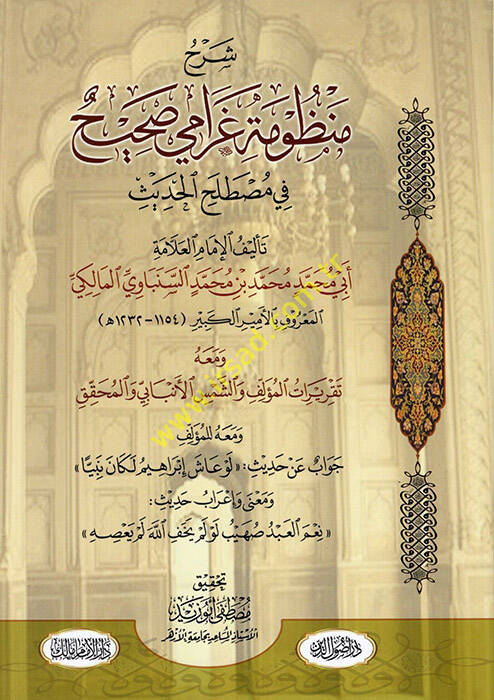 شَرْحُ
مَنْظُومَةِ غَرَامِي صَحِيحٌ
فِي مُصْطَلَحِ الحَدِيثِ
تَأليفُ الإمَامِ العَلَّامَةِ
أَبِي مُحَمَّد مُحَمَّدِ بْنِ مُحَمَّدٍ السِّنْبَاوِيِّ المَالِكِيِّ
المَعْرُوفِ بِالأَمِيرِ الكَبِيرِ (١١٥٤-١٢٣٢هـ)
وَمَعَهُ
تَقْرِيرَاتُ المُؤَلِّفِ وَالشَّمْسِ الأَنْبَابِيِّ وَالمُحَقِّقِ
وَمَعَهُ لِلْمُؤَلِّفِ
جَوَابٌ عَنْ حَدِيثِ: «لَوْ عَاشَ إِبْرَاهِيمُ لَكَانَ نَبِيًّا»
وَمَعْنَى وَإِعْرَابُ حَدِيثِ:
«نِعْمَ العَبْدُ صُهَيْبٌ لَوْ لَمْ يَخَفِ اللهَ لَمْ يَعْصِهِ»
تحقيق
مُصْطَفَى أَبُو زَيْد
الأستاذ المساعد بجامعة الأزهر
دار أصول الدين
دار الإمام مالك
www.irsad.com.tr